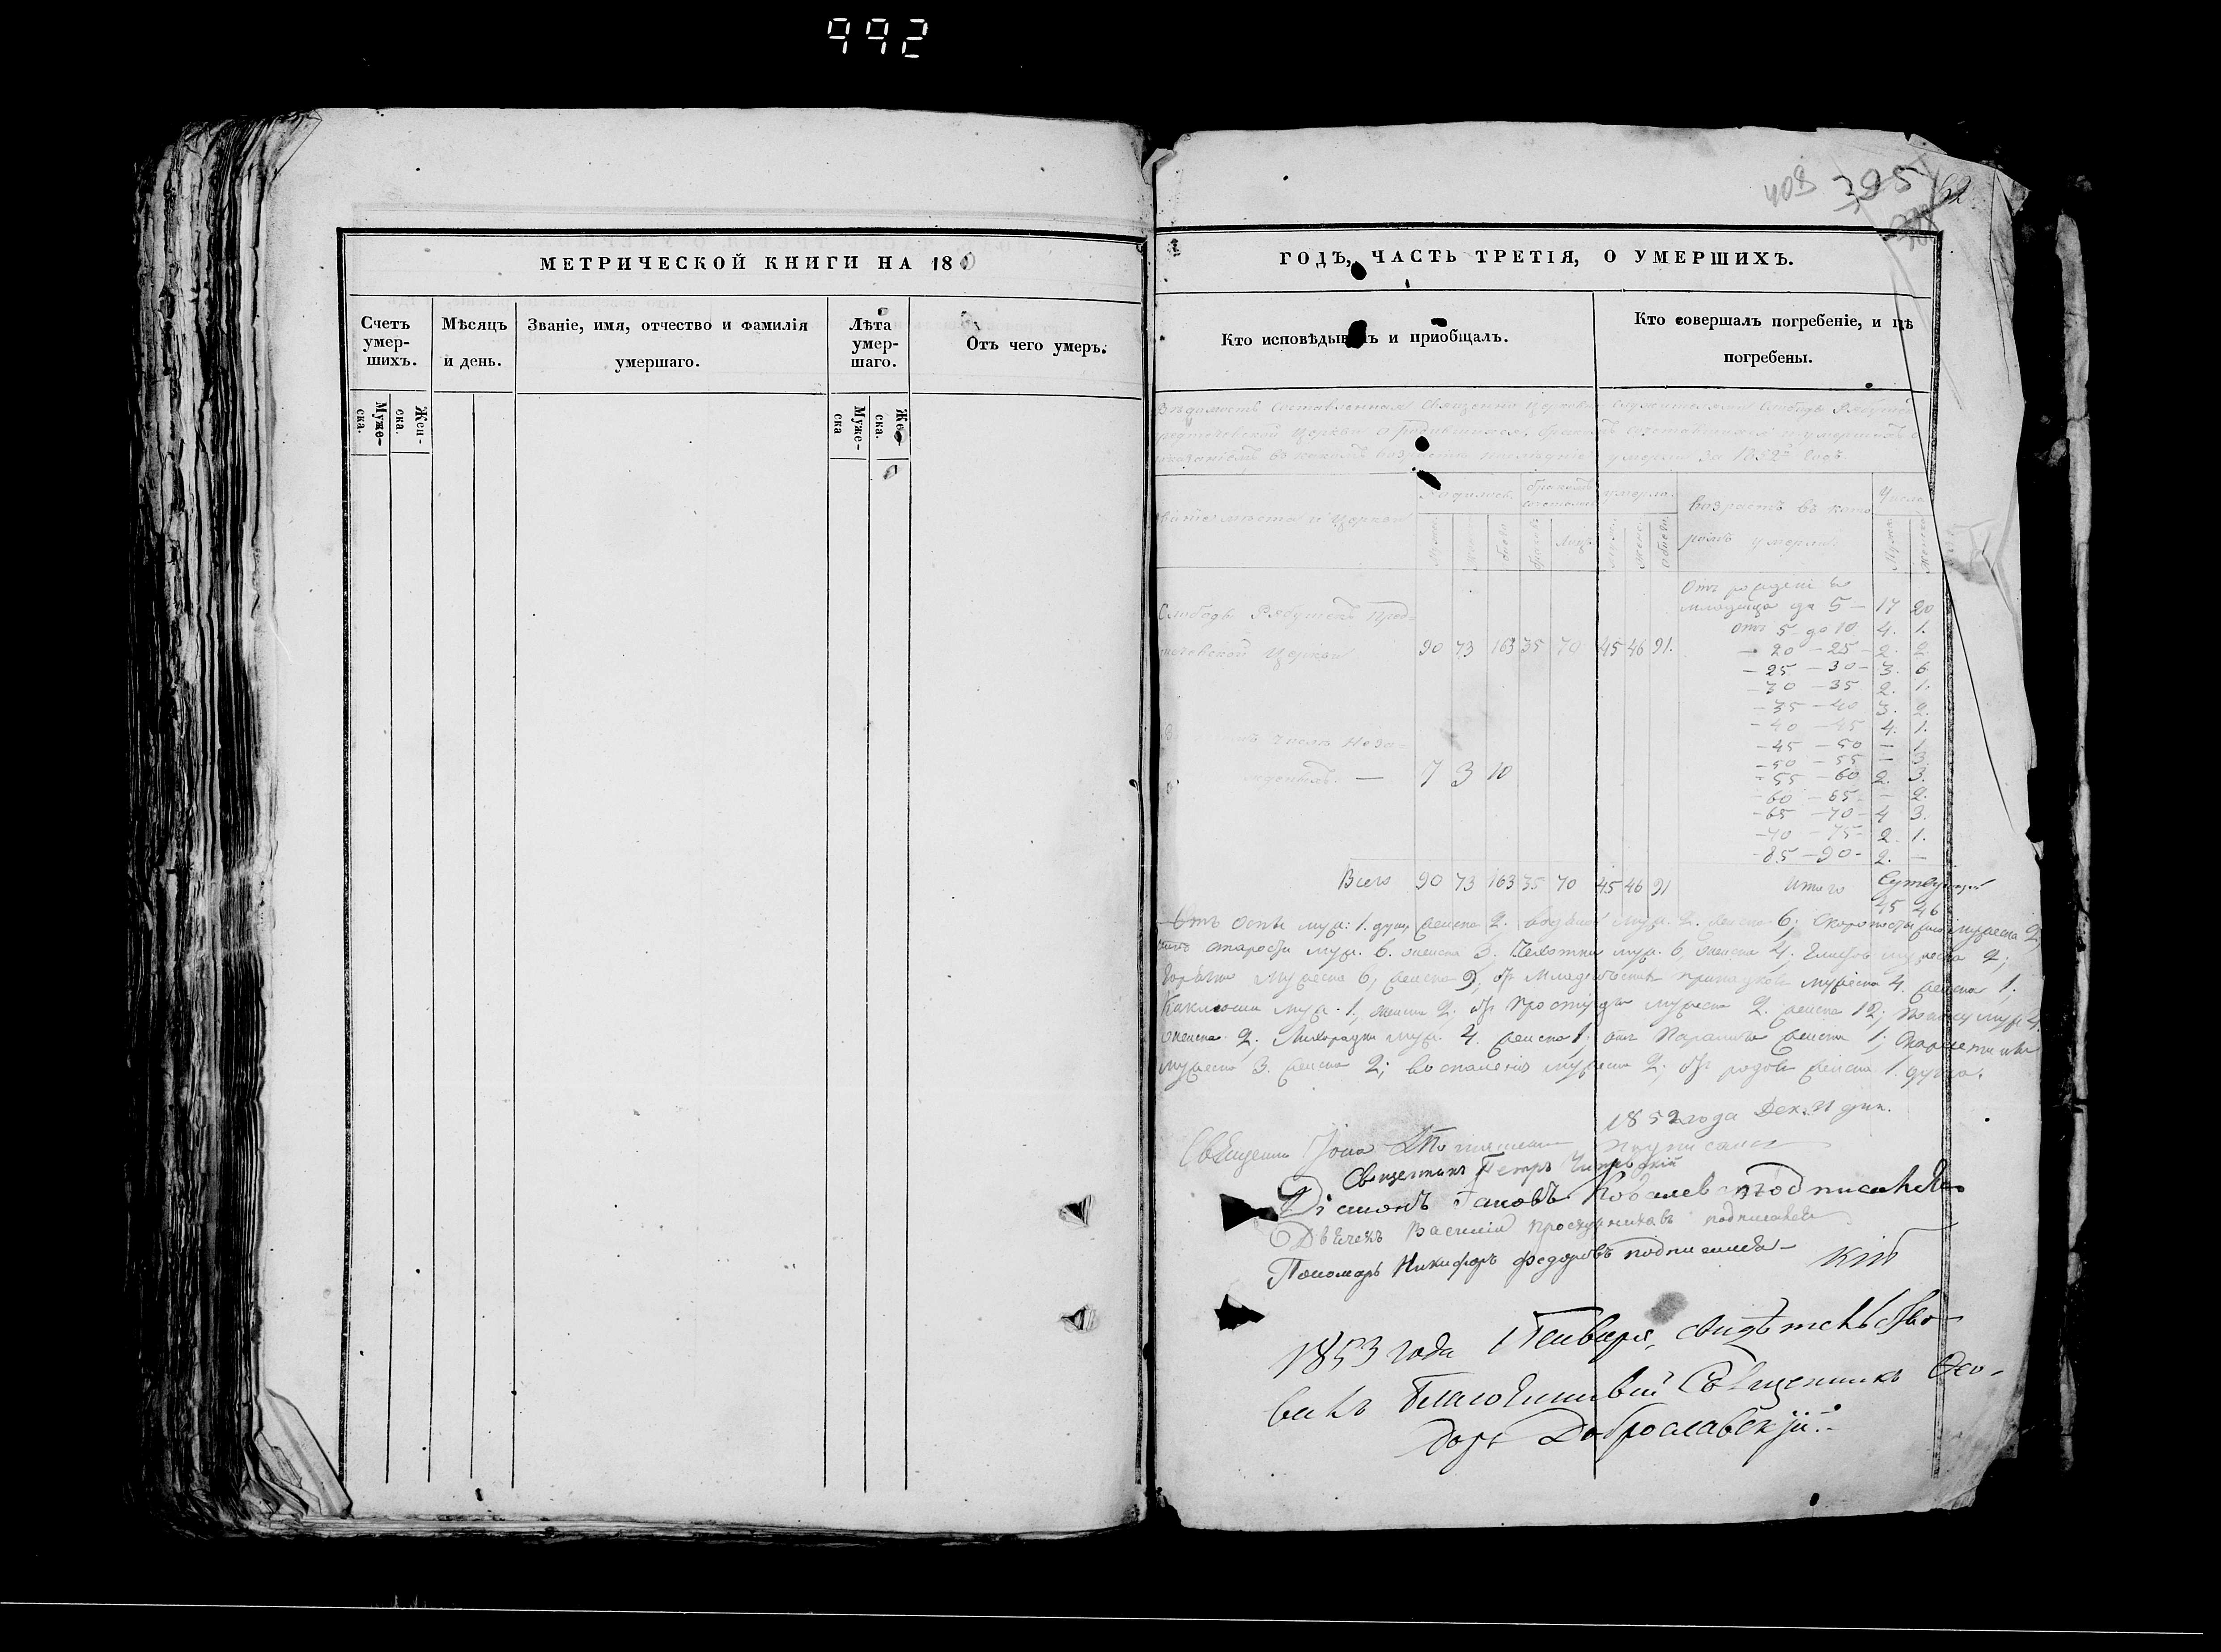 992
408 395 62
МЕТРИЧЕСКОЙ КНИГИ НА 18
ГОДЪ, ЧАСТЬ ТРЕТІЯ, О УМЕРШИХЪ.
Счетъ умер- шихъ.
Мѣсяцъ и день.
Званіе, имя, отчество и фамилія умершаго.
Лѣта умер- шаго.
Отъ чего умеръ.
Муже- ска.
Жен- ска.
Муже- ска
Же ска.
Кто исповѣдывалъ и пріобщалъ.
Кто совершалъ погребеніе, и гдѣ
погребены.
Вѣдомость составленная Священно церковно служителями Слободы Рябушекъ
Предтечевской Церкви о родившихся, бракомъ сочетавшихся и умершихъ съ
показаніемъ въ какомъ возрастѣ послѣдніе умерли за 1852й Годъ.
Званіе мѣста и Церкви
Родилось
бракомъ сочеталось
умерло
возрастъ въ кото-
ромъ умерли
Число
Муж. Женс. обоего Браковъ Лицъ Муж. Женс. Обоего Муж. Женска
Отъ рожденія
младенца до 5 — 17 20
Слободы Рябушекъ Пред-
Отъ 5 до 10 4. 1.
течевской Церкви 90 73 163 35 70 45 46 91.
— 20 — 25 — 2. 2.
— 25 — 30 — 3. 6
— 30 — 35 2. 1.
— 35 — 40 3. 2.
— 40 — 45 4. 1.
числѣ Неза-
— 45 — 50 — 1
— 50 — 55 — 3.
— 55 — 60 2. 3.
— 7 3 10
— 60 — 65 — — 2.
— 65 — 70 — 4 3.
— 70 — 75 — 2 1.
— 85 — 90 — 2. —
Всего 90 73 163 35 70 45 46 91
Итого
45 46
Отъ оспы муж: 1. душ, женска 2. муж. 2. женска 6; Скоропостижно мужеска 2,
отъ старости муж. 6. женска 3. Чахотки муж. 6, женска 4. мужеска 2;
Горячки мужеска 6, женска 9; отъ младенческихъ припадковъ мужеска 4. женска 1.
Коклюша муж. 1, женска 2. отъ простуды мужеска 2. женска 12; муж 4.
женска 2. Лихорадки муж. 4. женска 1; отъ Паралича женска 1; Скарлатины
мужеска 3. женска 2; воспаленія мужеска 2; отъ родовъ женска 1. душа.
1852 года Дек. 31 дня.
Священникъ Іона подписался
Священникъ Петръ
Діаконъ Іаковъ Ковалевъ подписался
Дьячекъ Василій Проскурниковъ подписался
Пономарь Никифоръ Федоровъ подписался
1853 года Генваря, свидѣтельство-
валъ Благочинный Священникъ Ѳео-
доръ Доброславскій.